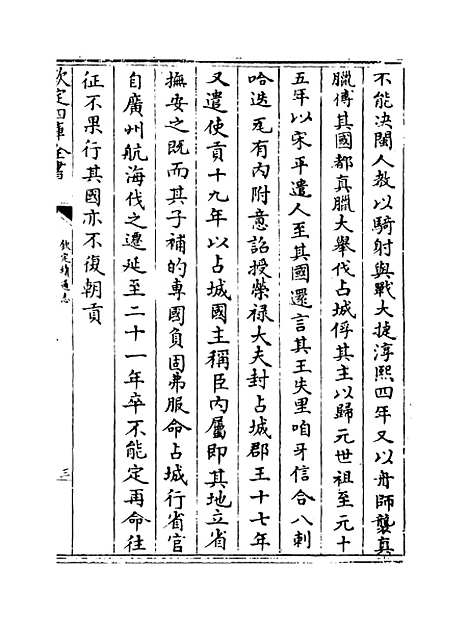 不能决閩人教以騎射與戰大捷淳熙四年又以舟師襲真
臘傅其國都真臘大舉伐占城俘其主以歸元世祖至元十
五年以宋平遣人至其國還言其王失里咱牙信合八剌
哈迭瓦有内附意詔授榮禄大夫封占城郡王十七年
又遣使貢十九年以占城國主稱臣内屬即其地立省
撫安之既而其子補的專國負固弗服命占城行省官
自廣州航海伐之遷延至二十一年卒不能定再命往
征不果行其國亦不復朝貢
欽定四庫全書
欽定續通志
三